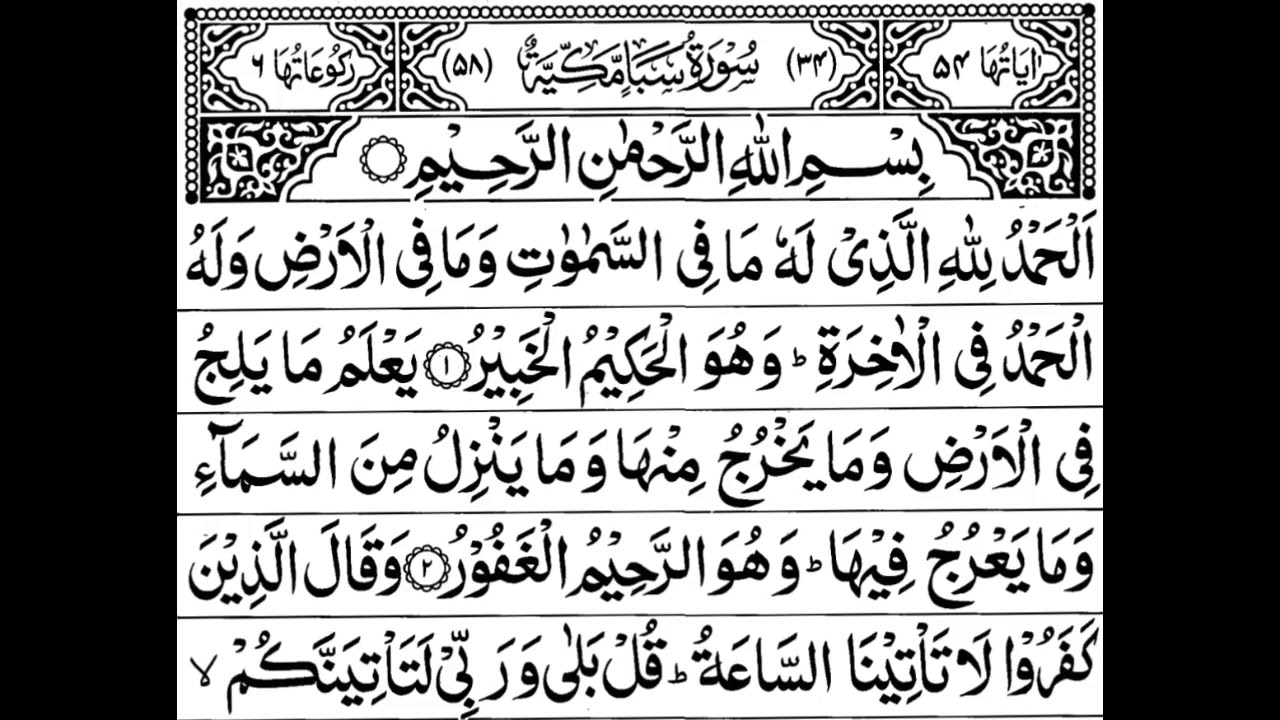 اٰيَاتُهَا ۵۴ (۳۴) سُوْرَةُ سَبَاٍ مَّكِّيَّةٌ (۵۸) رُكُوْعَاتُهَا ۶
بِسْمِ اللّٰهِ الرَّحْمٰنِ الرَّحِيْمِ
اَلْحَمْدُ لِلّٰهِ الَّذِىْ لَهٗ مَا فِى السَّمٰوٰتِ وَمَا فِى الْاَرْضِ وَلَهُ
الْحَمْدُ فِى الْاٰخِرَةِ ؕ وَهُوَ الْحَكِيْمُ الْخَبِيْرُ ۱ يَعْلَمُ مَا يَلِجُ
فِى الْاَرْضِ وَمَا يَخْرُجُ مِنْهَا وَمَا يَنْزِلُ مِنَ السَّمَآءِ
وَمَا يَعْرُجُ فِيْهَا ؕ وَهُوَ الرَّحِيْمُ الْغَفُوْرُ ۲ وَقَالَ الَّذِيْنَ
كَفَرُوْا لَا تَاْتِيْنَا السَّاعَةُ ؕ قُلْ بَلٰى وَرَبِّىْ لَتَاْتِيَنَّكُمْ ۙ